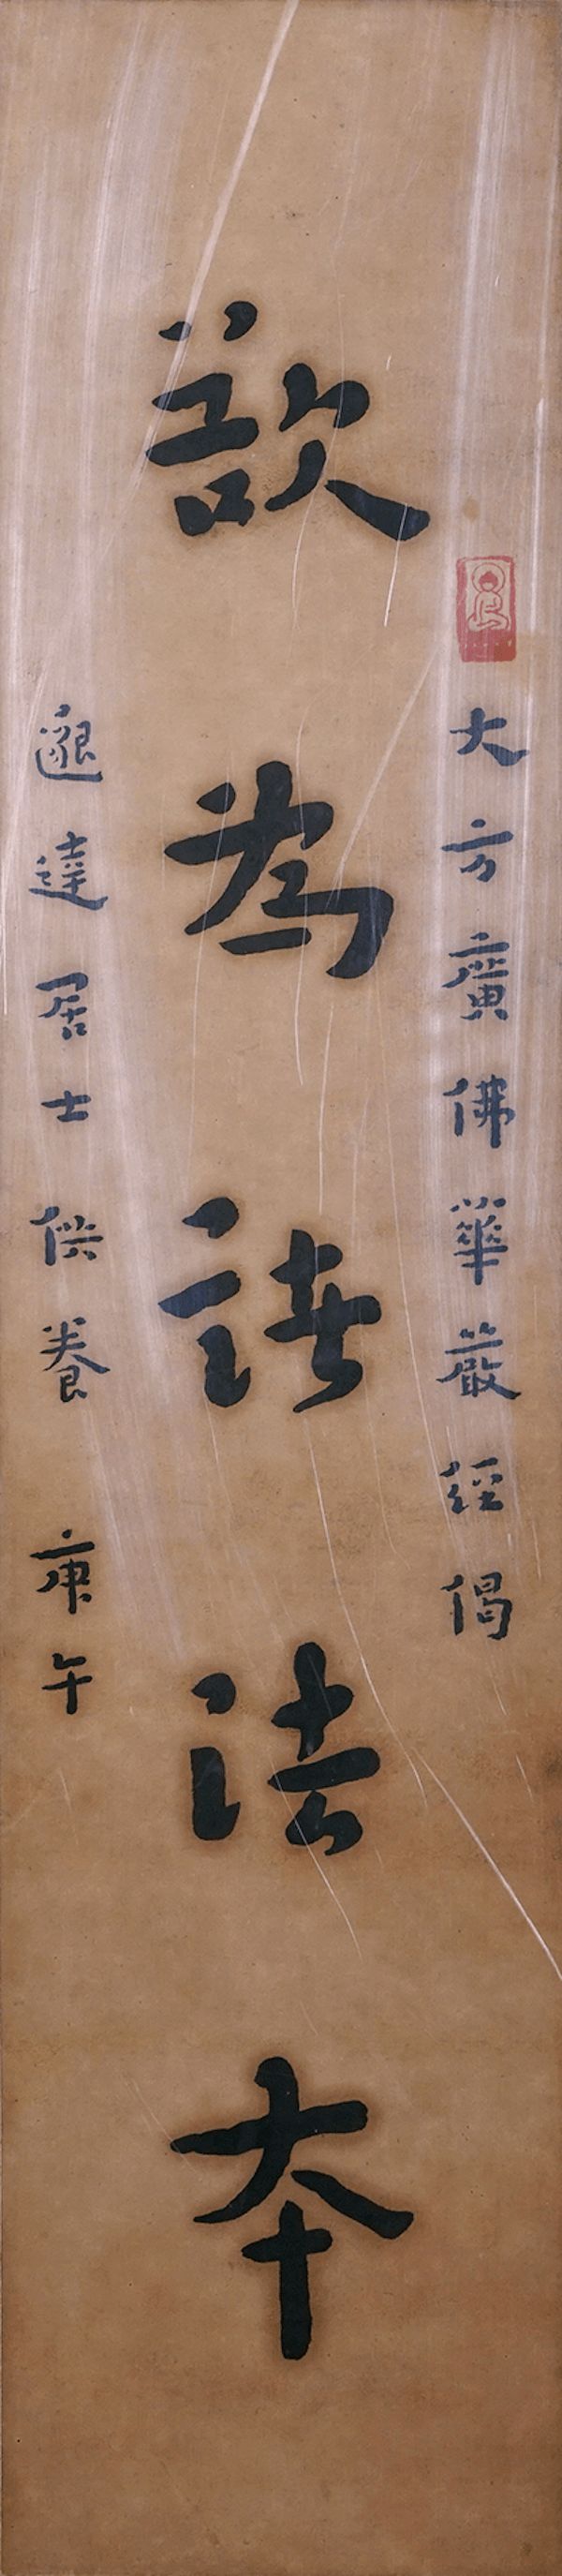 大方廣佛華嚴經偈
欲為諸法本
邈達居士供養 庚午